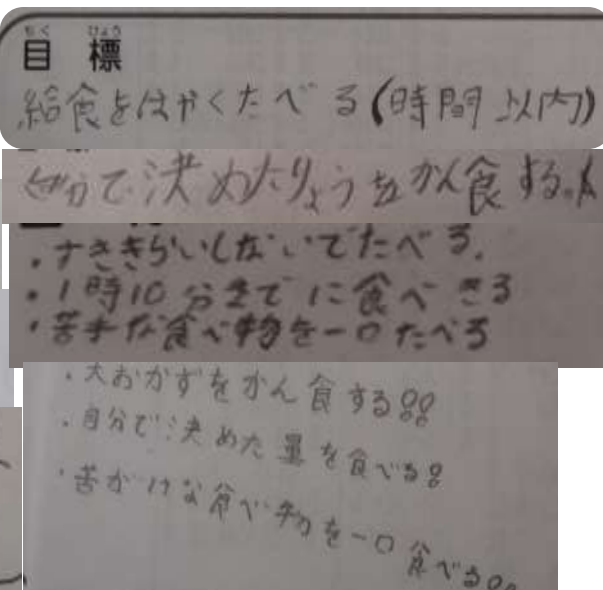 もく ひょう
目標
給食をはやくたべる(時間以内)
じぶんで決めたりょうをかん食する。
・すききらいしないでたべる.
・1時10分までに食べきる
・苦手な食べ物を一口たべる
・大おかずをかん食する!!
・自分で決めた量を食べる!
・苦がけな食べ物を一口食べる!!